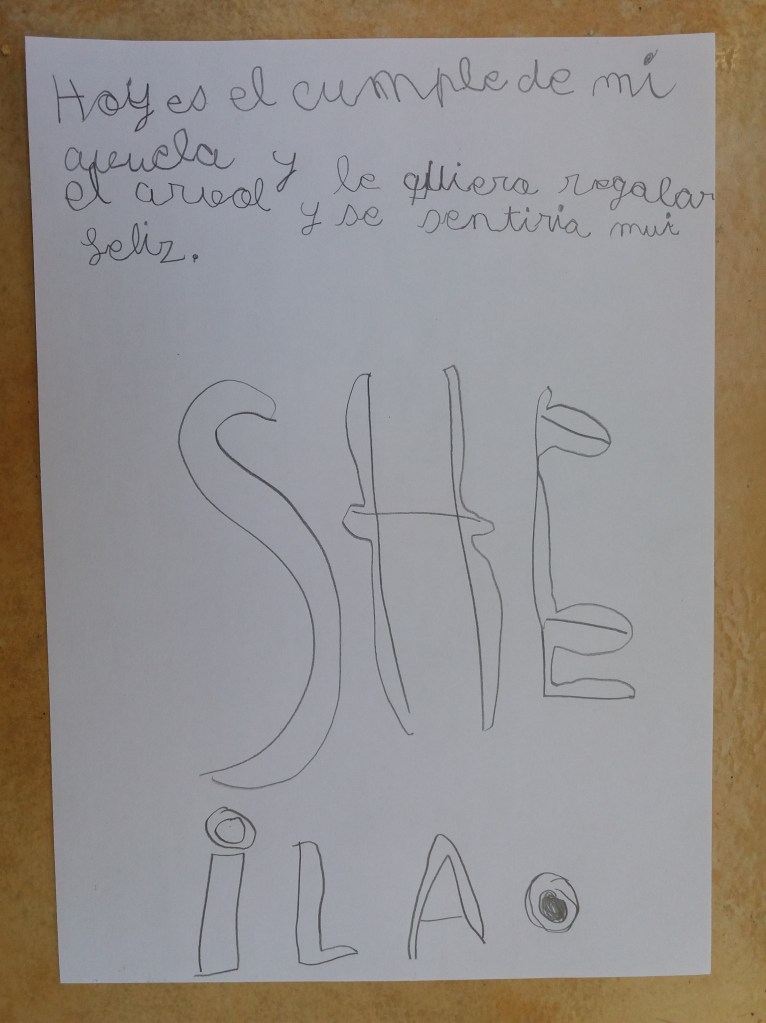 Hoy es el cumple de mi
apuela y le quiero regalar
el arvol y se sentiria mui
feliz.
SHE
iLA.